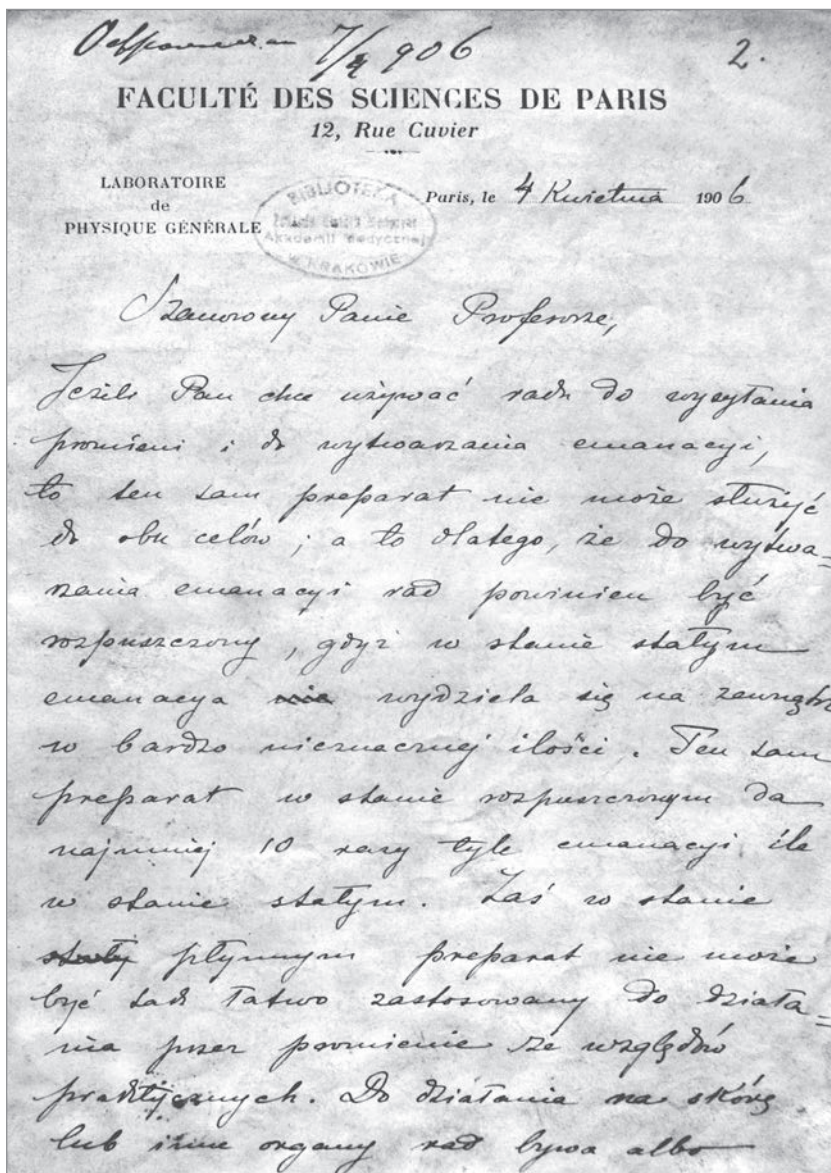 7/4 906 2.
FACULTÉ DES SCIENCES DE PARIS
12, Rue Cuvier
LABORATOIRE
de
PHYSIQUE GÉNÉRALE
BIBLIOTEKA
Akademii Medycznej
W KRAKOWIE
Paris, le 4 Kwietnia 1906
Szanowny Panie Profesorze,
Jeżeli Pan chce używać radu do wysyłania
promieni i do wytwarzania emanacyi,
to ten sam preparat nie może służyć
do obu celów; a to dlatego, że do wytwa=
rzania emanacyi rad powinien być
rozpuszczony, gdyż w stanie stałym
emanacya nie wydziela się na zewnątrz
w bardzo nieznacznej ilości. Ten sam
preparat w stanie rozpuszczonym da
najmniej 10 razy tyle emanacyi ile
w stanie stałym. Zaś w stanie
stały płynnym preparat nie może
być tak łatwo zastosowany do działa=
nia przez promienie ze względów
praktycznych. Do działania na skórę
lub inne organy rad bywa albo